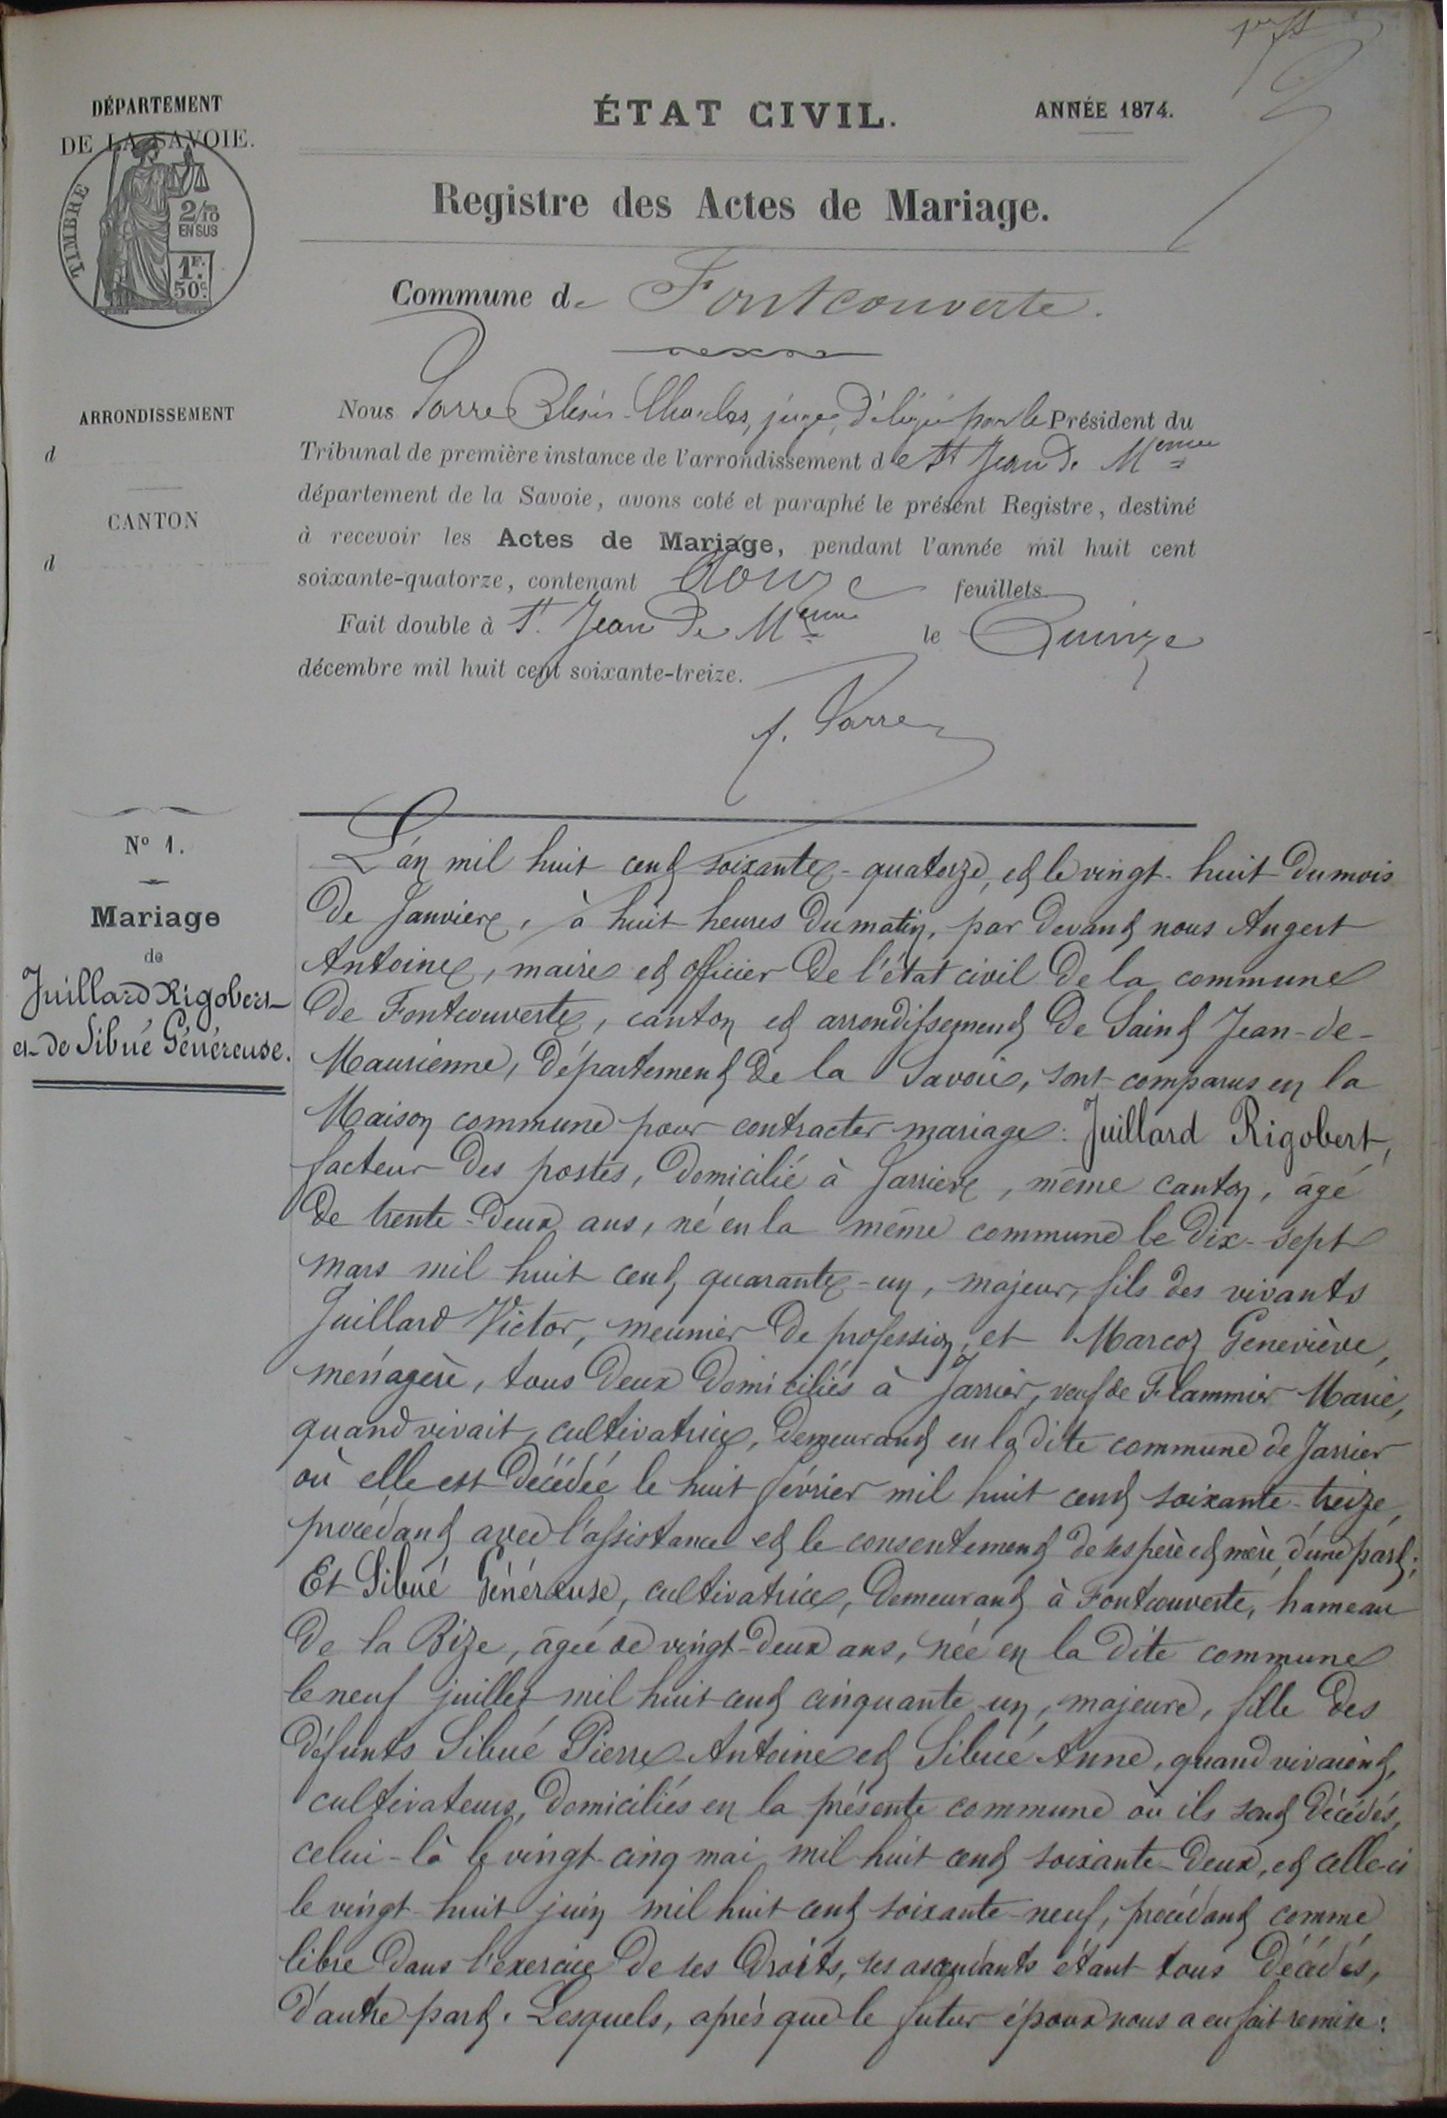 DÉPARTEMENT
DE LA SAVOIE.
TIMBRE
2/10
EN SUS
1F.
50c.
ÉTAT CIVIL.
ANNÉE 1874.
Registre des Actes de Mariage.
Commune de Fontcouverte.
ARRONDISSEMENT
d
CANTON
d
Nous Charles, juge, délégué par le Président du
Tribunal de première instance de l'arrondissement de St Jean de Menne
département de la Savoie, avons coté et paraphé le présent Registre, destiné
à recevoir les Actes de Mariage, pendant l'année mil huit cent
soixante-quatorze, contenant feuillets
Fait double à St. Jean de Menne le Quinze
décembre mil huit cent soixante-treize.
Nº 1.
Mariage
de
Juillard Rigobert
et de Sibué Généreuse.
L'an mil huit cent soixante-quatorze, et le vingt-huit du mois
de Janvier, à huit heures du matin, par devant nous Augert
Antoine, maire et officier de l'état civil de la commune
de Fontcouverte, canton et arrondissement de Saint Jean-de-
Maurienne, département de la Savoie, sont comparus en la
Maison commune pour contracter mariage : Juillard Rigobert,
facteur des postes, domicilié à Jarrier, même canton, âgé
de trente-deux ans, né en la même commune le dix-sept
mars mil huit cent quarante-un, majeur, fils des vivants
Juillard Victor, meunier de profession, et Marcoz Geneviève,
ménagère, tous deux domiciliés à Jarrier, veuf de Flammier Marie,
quand vivait, cultivatrice, demeurant en la dite commune de Jarrier
où elle est décédée le huit février mil huit cent soixante-treize,
procédant avec l'assistance et le consentement de ses père et mère, d'une part;
Et Sibué Généreuse, cultivatrice, demeurant à Fontcouverte, hameau
de la Bize, âgée de vingt-deux ans, née en la dite commune
le neuf juillet mil huit cent cinquante-un, majeure, fille des
défunts Sibué Pierre-Antoine et Sibué Anne, quand vivaient,
cultivateurs, domiciliés en la présente commune où ils sont décédés,
celui-là le vingt-cinq mai mil huit cent soixante-deux, et celle-ci
le vingt-huit juin mil huit cent soixante-neuf, procédant comme
libre dans l'exercice de ses droits, ses ascendants étant tous décédés,
d'autre part. Lesquels, après que le futur époux nous a eu fait remise :